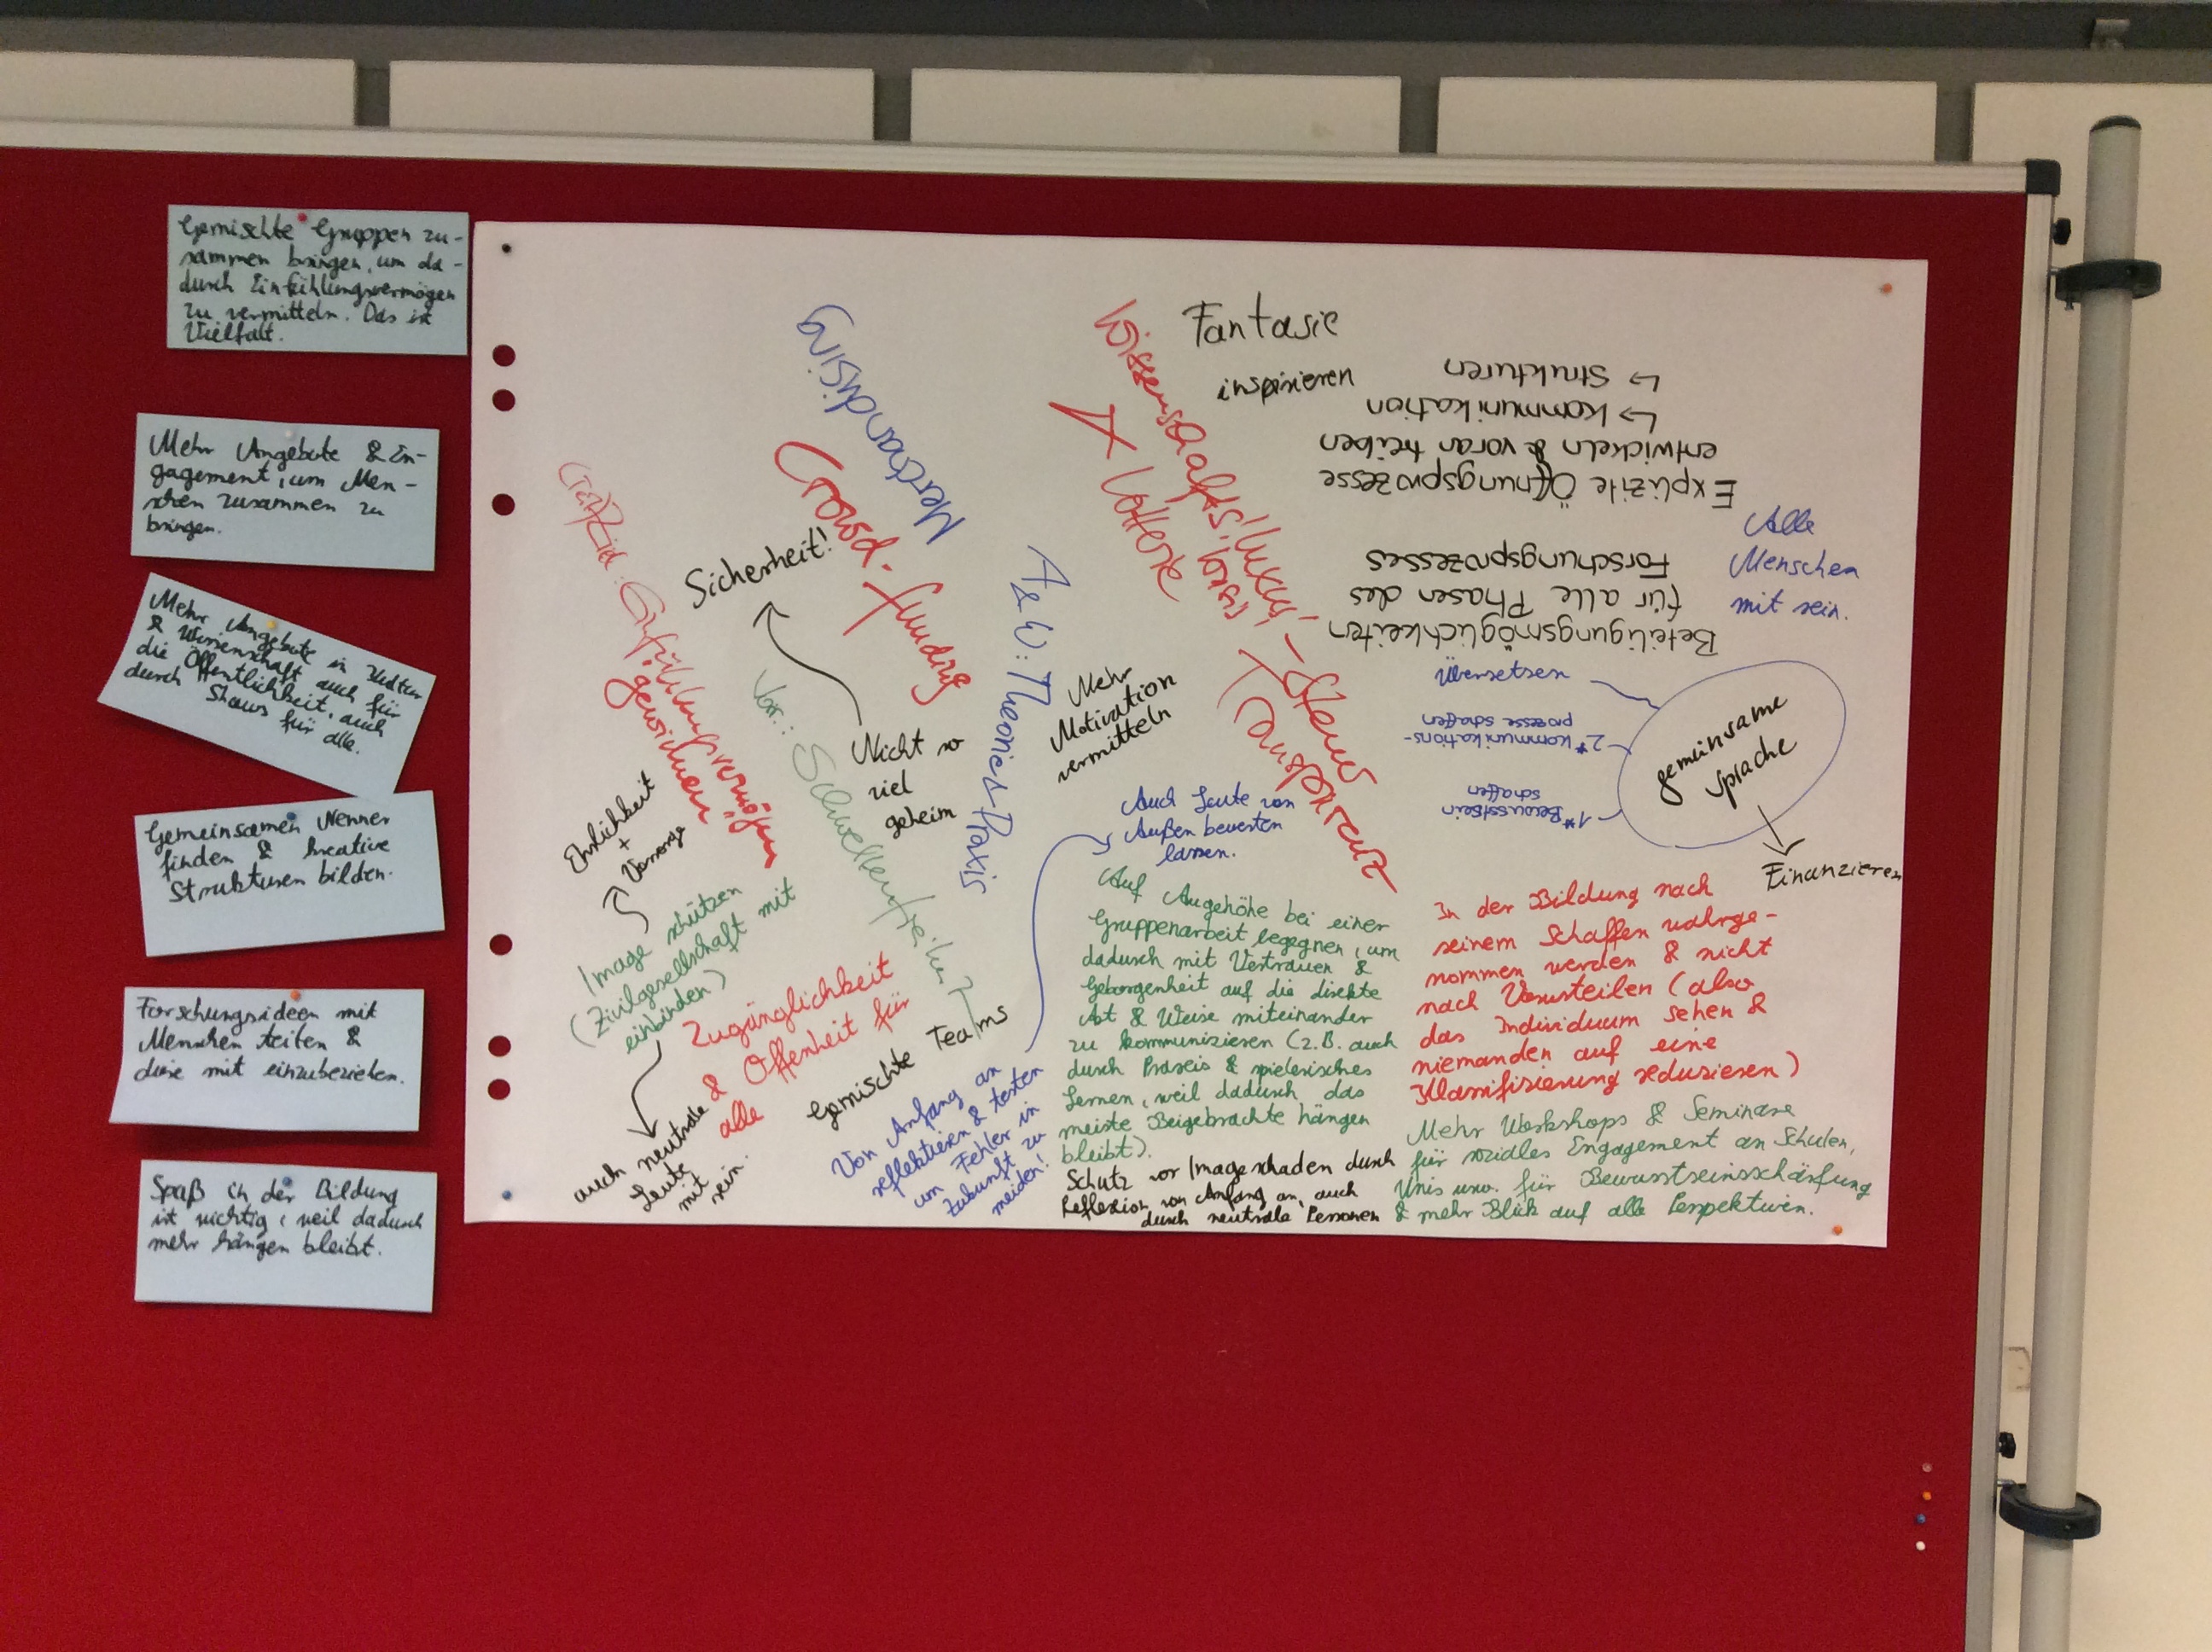 Gemischte Gruppen zu-
sammen bringen, um da-
durch Einfühlungsvermögen
zu vermitteln. Das ist
Vielfalt.
Mehr Angebote & En-
gagement, um Men-
schen zusammen zu
bringen.
Mehr Angebote in
& Wissenschaft auch für
die Öffentlichkeit, auch
durch Shows für alle.
Gemeinsamen Nenner
finden & kreative
Strukturen bilden.
Forschungsideen mit
Menschen teilen &
diese mit einzubeziehen.
Spaß in der Bildung
ist wichtig, weil dadurch
mehr hängen bleibt.
Merchandising
Crowd-funding
Sicherheit!
Nicht so
viel
geheim
Einfühlungsvermögen
gewinnen
Ehrlichkeit
+
Vorsorge
Image schützen
(Zivilgesellschaft mit
einbinden)
auch neutrale
Leute
mit
sein.
Zugänglichkeit
& Offenheit für
alle
Gemischte Teams
Von Anfang an
reflektieren & testen
um Fehler in
Zukunft zu
meiden!
Auch Leute von
Außen bewerten
lassen.
A & W: Theorie & Praxis
Mehr
Motivation
vermitteln
Fantasie
inspirieren
Lotterie
Transparenz
Beteiligungsmöglichkeiten
für alle Phasen des
Forschungsprozesses
Explizite Öffnungsprozesse
entwickeln & voran treiben
↳ Kommunikation
↳ Strukturen
Alle
Menschen
mit sein.
gemeinsame
Sprache
1* Bewusstsein
schaffen
2* Kommunikations-
prozesse schaffen
Übersetsen
Finanzieren
Auf Augehöhe bei einer
Gruppenarbeit begegnen, um
dadurch mit Vertrauen &
Geborgenheit auf die direkte
Art & Weise miteinander
zu kommunizieren (z.B. auch
durch Praxis & spielerisches
Lernen, weil dadurch das
meiste Beigebrachte hängen
bleibt).
Schutz vor Imageschaden durch
Reflexion von Anfang an, auch
durch neutrale Personen
In der Bildung nach
seinem Schaffen wahrge-
nommen werden & nicht
nach Vorurteilen (also
das Individuum sehen &
niemanden auf eine
Klassifizierung reduzieren)
Mehr Workshops & Seminare
für soziales Engagement an Schulen,
Unis usw. für Bewusstseinsschärfung
& mehr Blick auf alle Perspektiven.